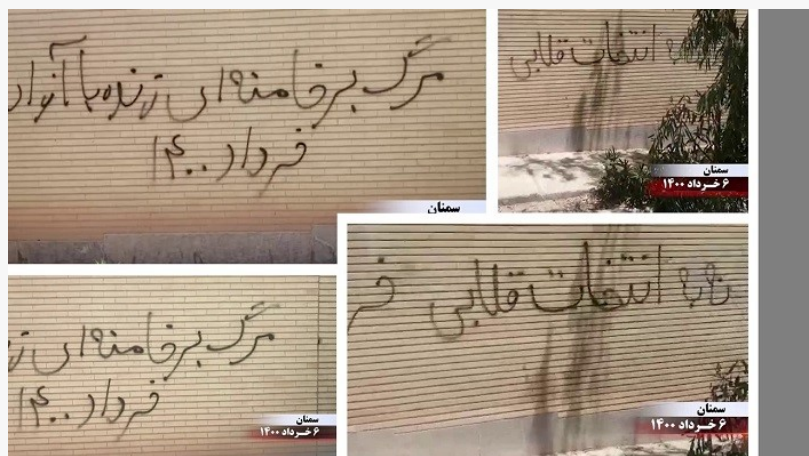 مرگ بر خامنه ای زنده باد آزاد
خرداد ۱۴۰۰
سمنان
نه به انتخابات قلابی
سمنان
۶ خرداد ۱۴۰۰
مرگ بر خامنه ای
خرداد ۱۴۰۰
سمنان
۶ خرداد ۱۴۰۰
نه به انتخابات قلابی
سمنان
۶ خرداد ۱۴۰۰